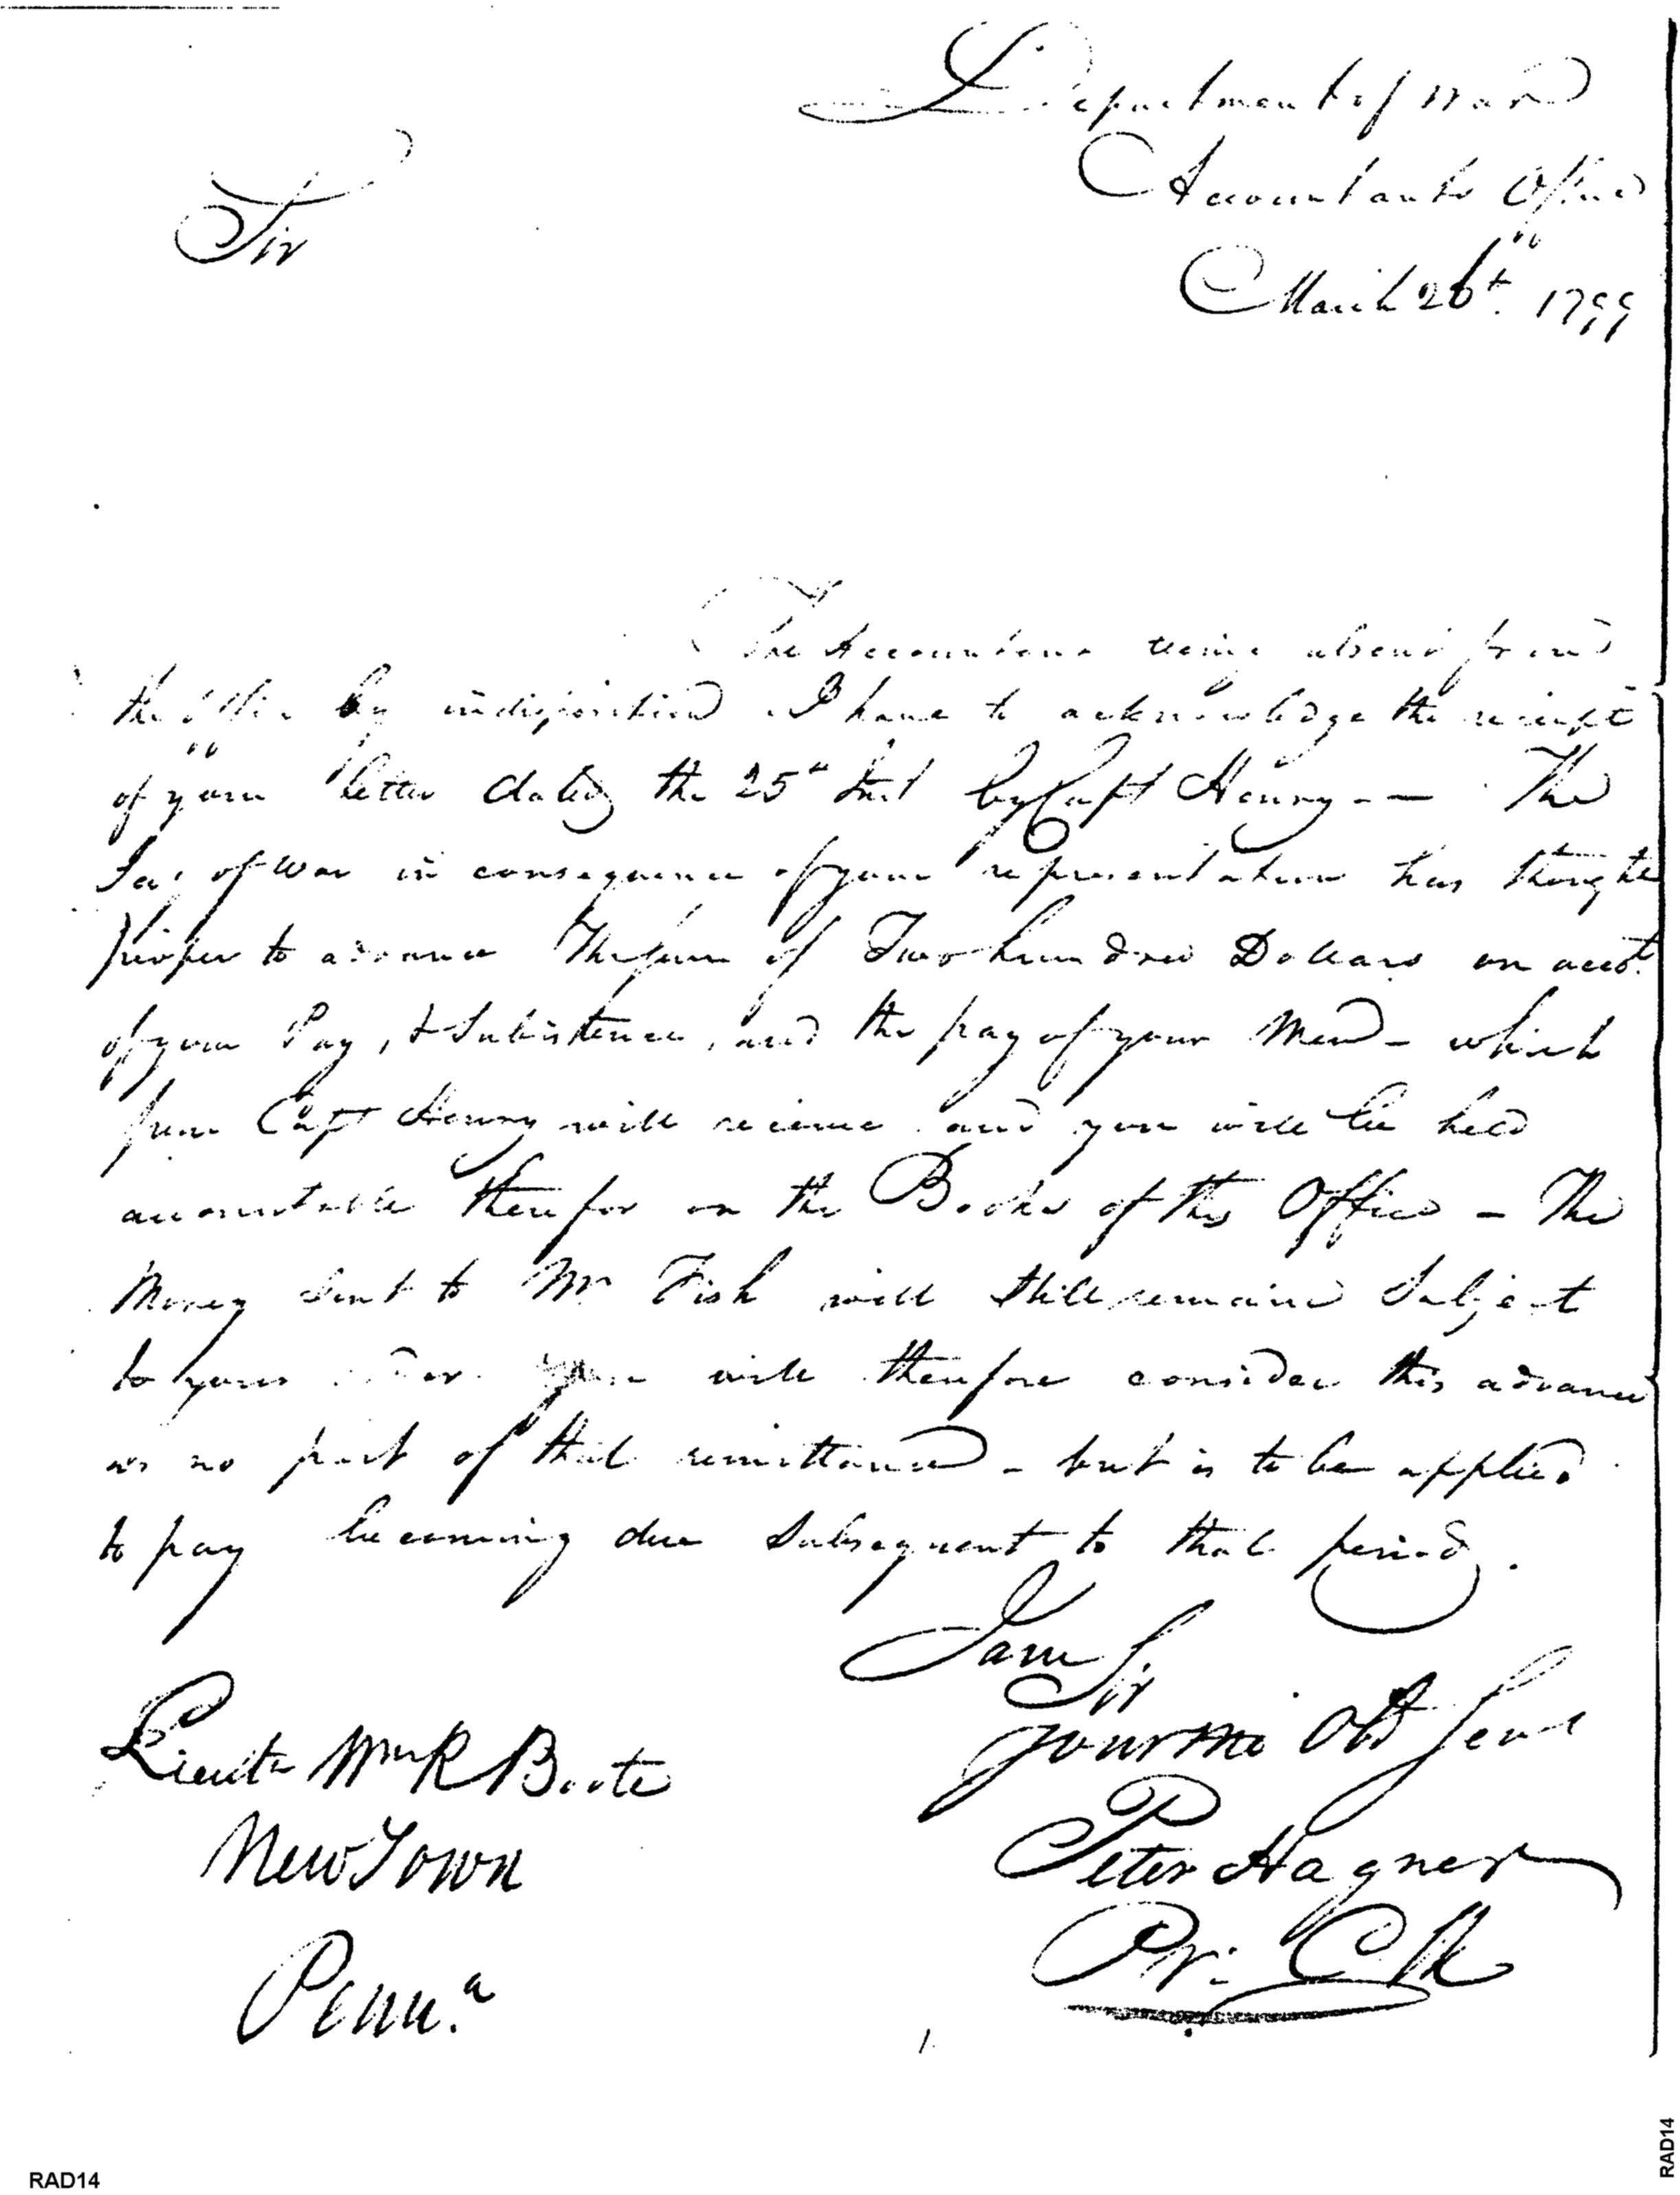 Department of War
Accountants Office
Sir
March 26th. 1799
The Accountant being absent from
the Office by indisposition I have to acknowledge the receipt
of your letter dated the 25th Inst by Capt Henry -- The
Secy of War in consequence of your representation has thought
proper to advance The sum of Two hundred Dollars on acct.
of your Pay, & Subsistence, and the pay of your Men - which
sum Capt Henry will receive and you will be held
accountable therefor on the Books of this Office - The
Money sent to Mr Fish will still remain Subject
to your order. You will therefore consider this advance
as no part of that remittance - but is to be applied
to pay becoming due Subsequent to that period.
I am Sir
your Mo Obt Servt
Lieut Wm R Boote
New Town
Penna.
Peter Hagner
Pr: Clk
RAD14
RAD14